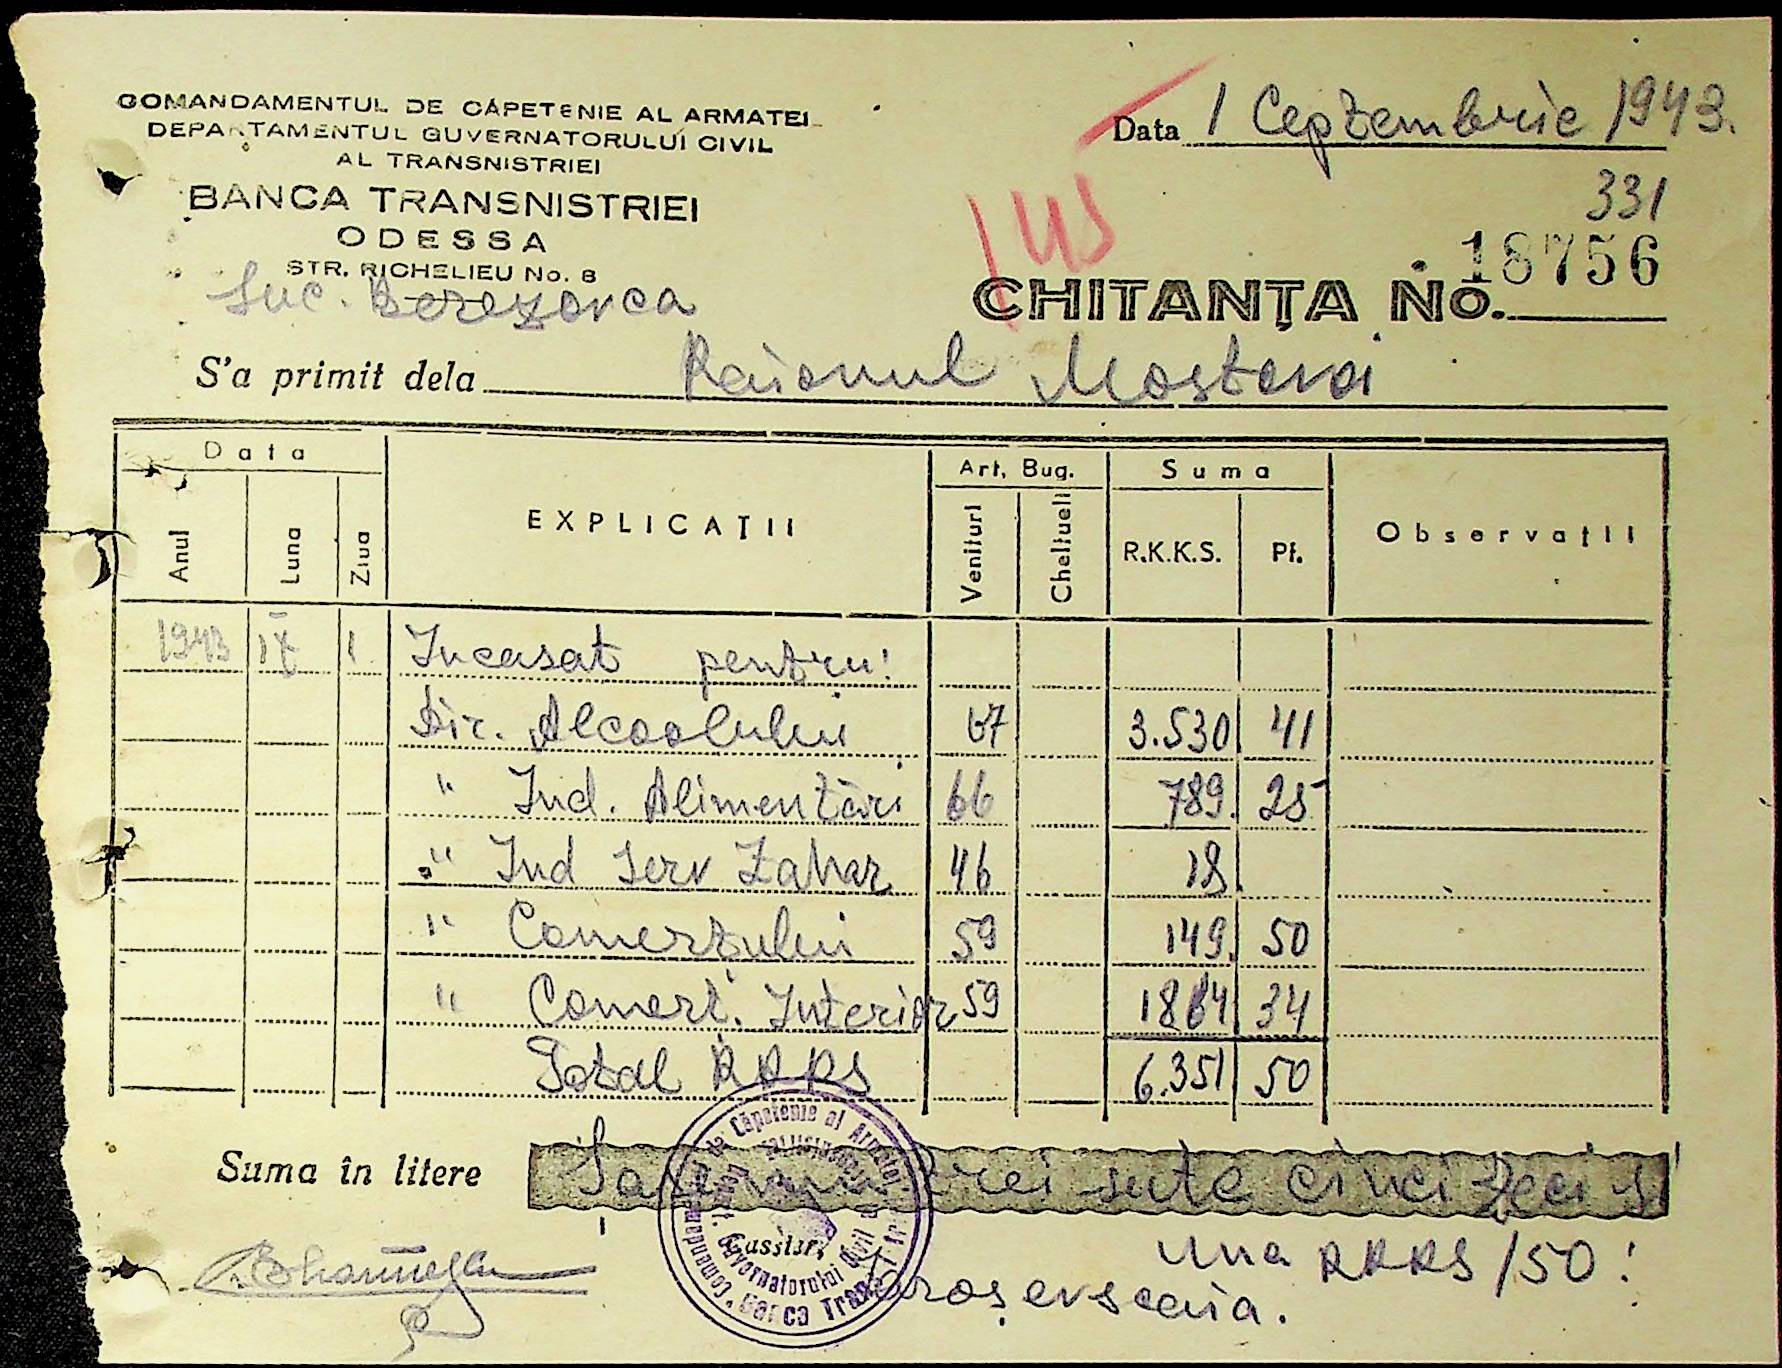 COMANDAMENTUL DE CĂPETENIE AL ARMATEI
DEPARTAMENTUL GUVERNATORULUI CIVIL
AL TRANSNISTRIEI
BANCA TRANSNISTRIEI
ODESSA
STR. RICHELIEU No. 8
Suc. Berezovca
Data 1 Ceptembrie 1943.
331
145
CHITANȚA No. 18756
S'a primit dela Raionul Mostovoi
Data Art. Bug. Suma
Anul Luna Ziua EXPLICAȚII Venituri Cheltueli R.K.K.S. Pf. Observații
1943 IX 1 Incasat pentru:
Dir. Alcoolului 67 3.530 41
" Ind. Alimentări 66 789. 25
" Ind Serv Zahar 46 18.
" Comerțului 59 149. 50
" Comerț. Interior 59 1864 34
Total RKKS 6.351 50
Suma în litere Șase mii trei sute cinci zeci și
una RKKS /50!
Cassier,
Comandamentul de Căpetenie al Armatei
Depart. Guvernatorului Civil al Transnistriei
Banca